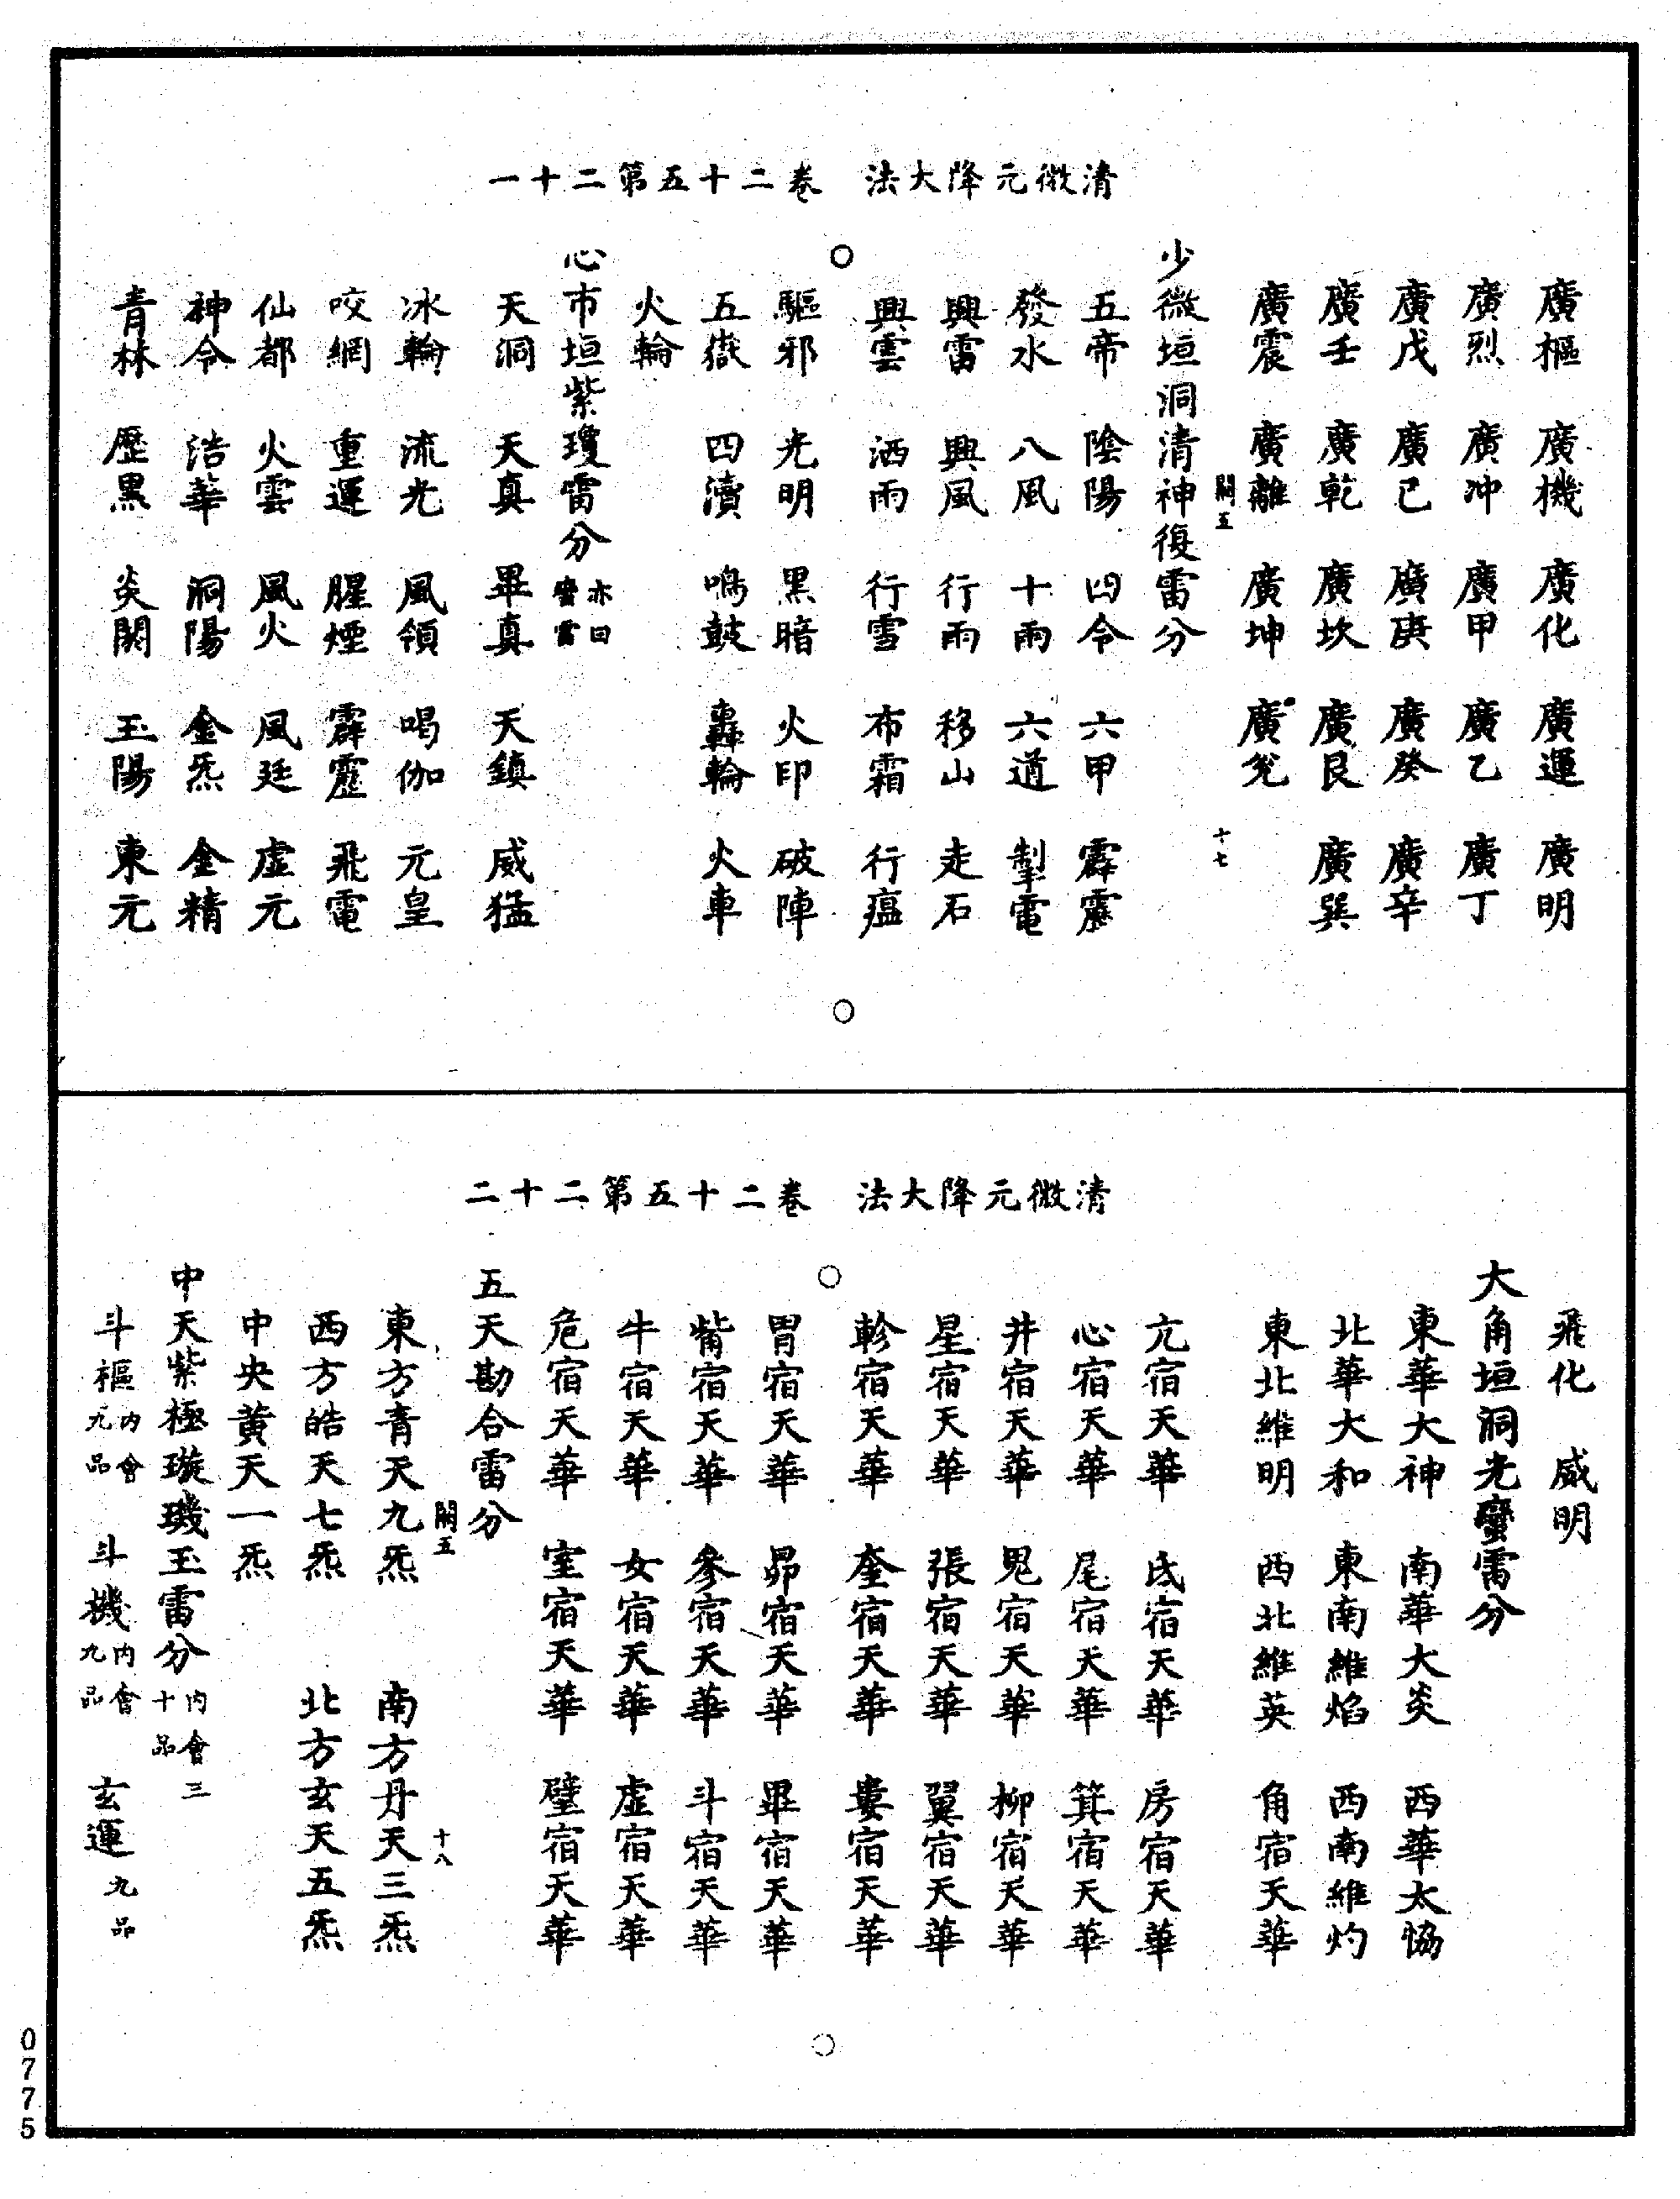 清微元降大法　卷二十五第二十一
廣樞　廣機　廣化　廣運　廣明
廣烈　廣冲　廣甲　廣乙　廣丁
廣戊　廣己　廣庚　廣癸　廣辛
廣壬　廣乾　廣坎　廣艮　廣巽
廣震　廣離　廣坤　廣兊
關五　十七
少微垣洞清神復雷分
五帝　陰陽　四令　六甲　霹靂
發水　八風　十雨　六道　掣電
興雷　興風　行雨　移山　走石
興雲　洒雨　行雪　布霜　行瘟
驅邪　光明　黑暗　火印　破陣
五嶽　四瀆　鳴鼓　轟輪　火車
火輪
心市垣紫瓊雷分亦曰蠻雷
天洞　天真　畢真　天鎮　威猛
冰輪　流光　風領　喝伽　元皇
咬網　重運　腥煙　霹靂　飛電
仙都　火雲　風火　風廷　虛元
神令　浩華　洞陽　金炁　金精
青林　歷黑　炎關　玉陽　東元
清微元降大法　卷二十五第二十二
飛化　威明
大角垣洞光蠻雷分
東華大神　南華大炎　西華太恊
北華大和　東南維焰　西南維灼
東北維明　西北維英　角宿天華
亢宿天華　氐宿天華　房宿天華
心宿天華　尾宿天華　箕宿天華
井宿天華　鬼宿天華　柳宿天華
星宿天華　張宿天華　翼宿天華
軫宿天華　奎宿天華　婁宿天華
胃宿天華　昴宿天華　畢宿天華
觜宿天華　參宿天華　斗宿天華
牛宿天華　女宿天華　虛宿天華
危宿天華　室宿天華　壁宿天華
五天勘合雷分
關五　十八
東方青天九炁　南方丹天三炁
西方皓天七炁　北方玄天五炁
中央黃天一炁
中天紫極璇璣玉雷分內會三十品
斗樞內會九品　斗機內會九品　玄運九品
0775